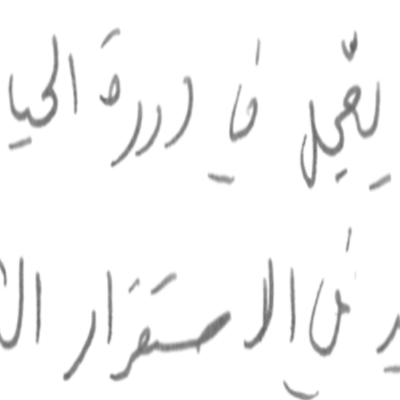 في دورة الحيا
في الاستقرار ال